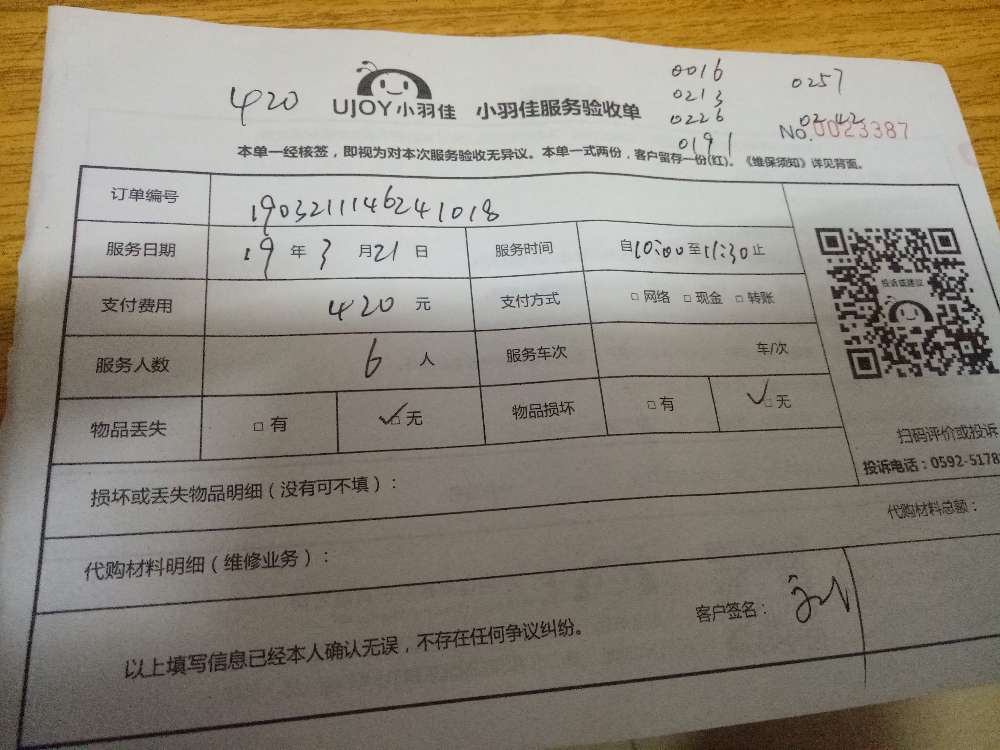 420
UJOY小羽佳 小羽佳服务验收单
0016
0213
0226
0191
0257
0242
No.0023387
本单一经核签，即视为对本次服务验收无异议。本单一式两份，客户留存一份(红)。《维保须知》详见背面。
订单编号 19032111146241018
服务日期 19年3月21日 服务时间 自10:00至11:30止
支付费用 420元 支付方式 □网络 □现金 □转账
投诉或建议
服务人数 6人 服务车次 车/次
物品丢失 □有 ✓□无 物品损坏 □有 ✓□无
扫码评价或投诉
投诉电话：0592-5178
损坏或丢失物品明细（没有可不填）：
代购材料明细（维修业务）： 代购材料总额：
以上填写信息已经本人确认无误，不存在任何争议纠纷。 客户签名：